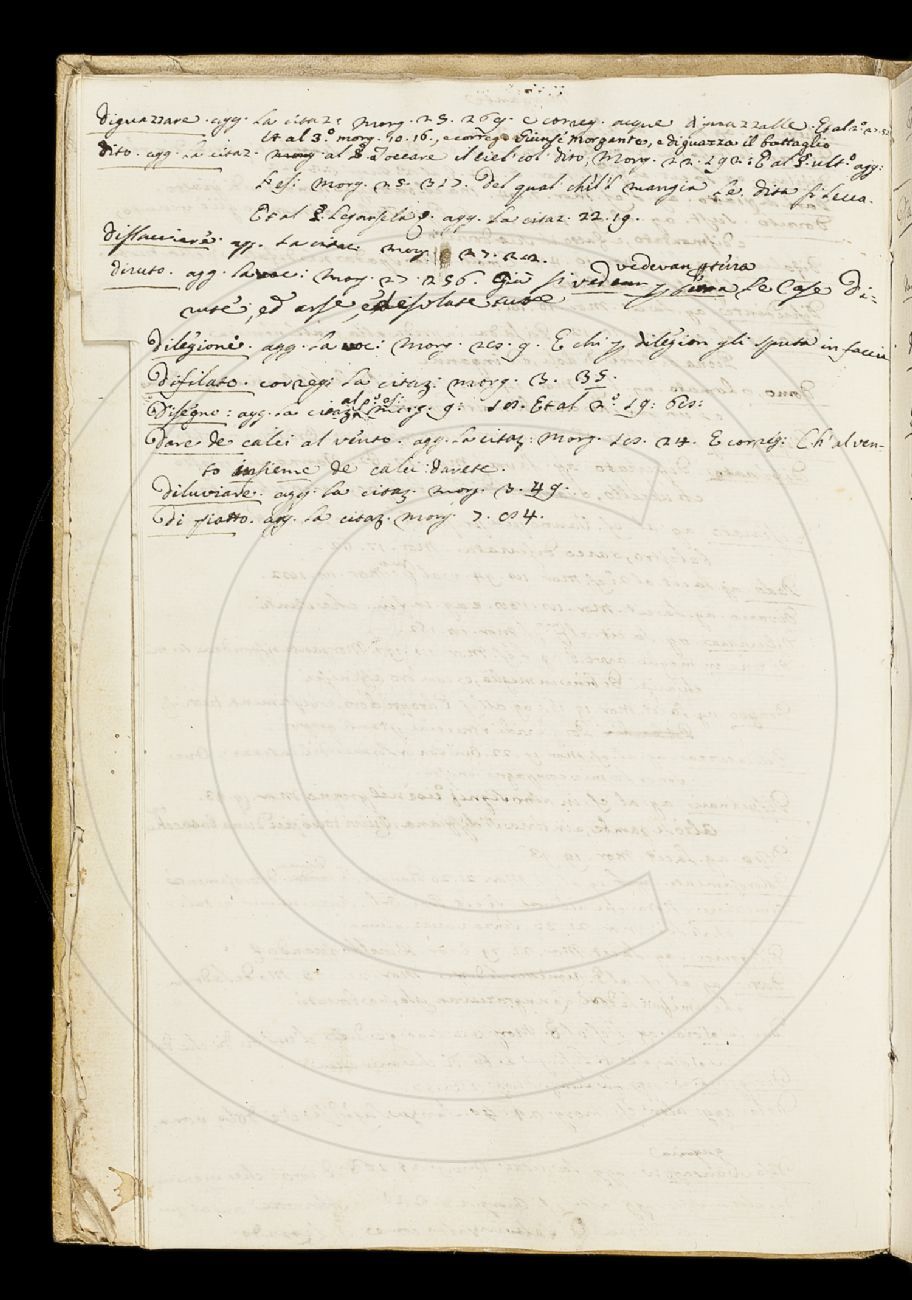 diguazzare. agg. la citaz: Morg. 25. 269. e correg. acque diguazzalle. Et al 2.º 27. 52
Et al 3.º morg. 10. 16., e correg. Giunse Morgante, e diguazza il battaglio
dito. agg. la citaz. al Toccare il ciel col dito, Morg. 22. 192: E al §. ult.º agg:
l'es: Morg. 25. 317. Del qual chi 'l mangia le dita si lecca.
Et al §. Legarsela. agg. la citaz: 22. 19.
disfacciare. agg. la citaz: Morg. 27. 202.
diruto. agg. la voc: Morg. 27. 256. Già si vedean vedevan p terra le Case di=
rute, ed arse, e desolate tutte
dilezione. agg. la voc: Morg. 25. 9. E chi p dilezion gli sputa in faccia
difilato. correg: la citaz: Morg. 3. 35.
al p.º es:
disegno: agg. la citaz: Morg. 9: 10. Et al 2.º 19: 60:
dare de calci al vento. agg. la citaz: Morg. 10. 24. E correg: Ch' al ven-
to insieme de calci davete.
diluviare. agg. la citaz. Morg. 3. 49.
di piatto. agg. la citaz. Morg. 7. 54.